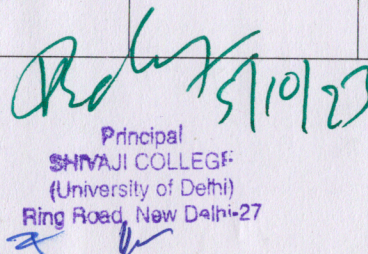 5/10/23
Principal
SHIVAJI COLLEGE
(University of Delhi)
Ring Road, New Delhi-27